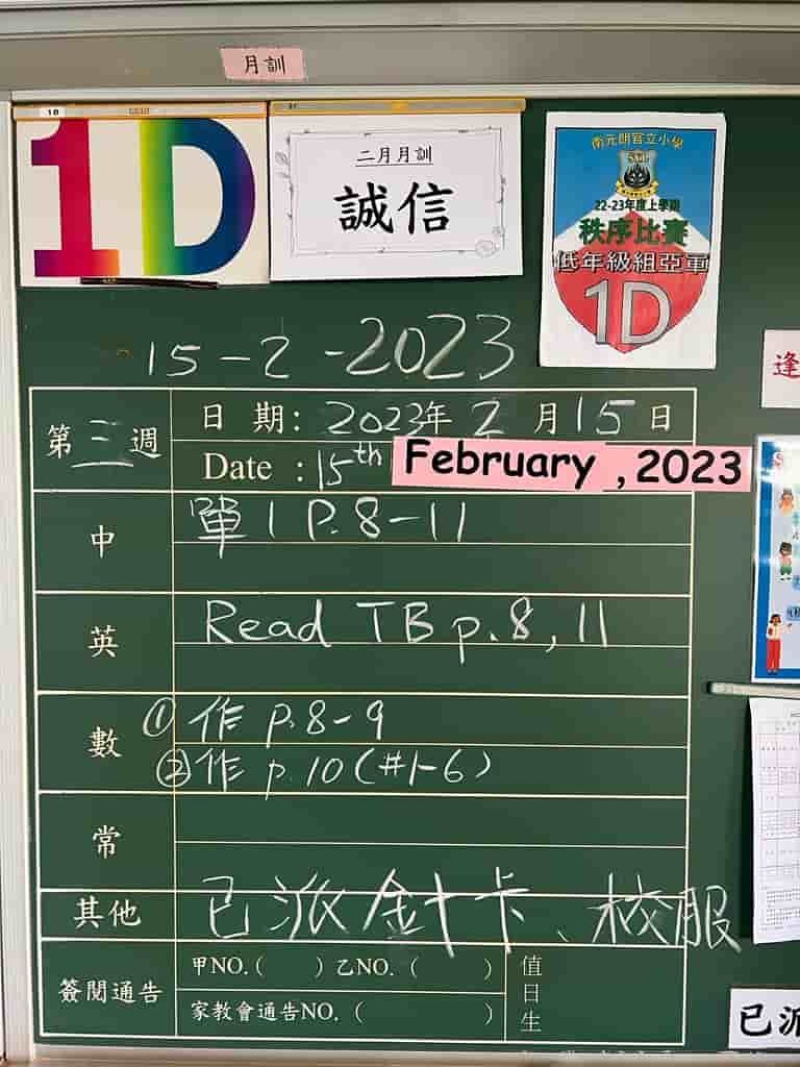 月訓
1D
二月月訓
誠信
南元朗官立小學
22-23年度上學期
秩序比賽
低年級組亞軍
1D
15-2-2023
逢
第三週
日期: 2023年2月15日
Date : 15th February , 2023
中
單1 P.8-11
英
Read TB p.8, 11
數
① 作 p.8-9
② 作 p.10(#1-6)
常
其他
已派針卡、校服
簽閱通告
甲NO.( ) 乙NO. ( )
家教會通告NO. ( )
值日生
已派